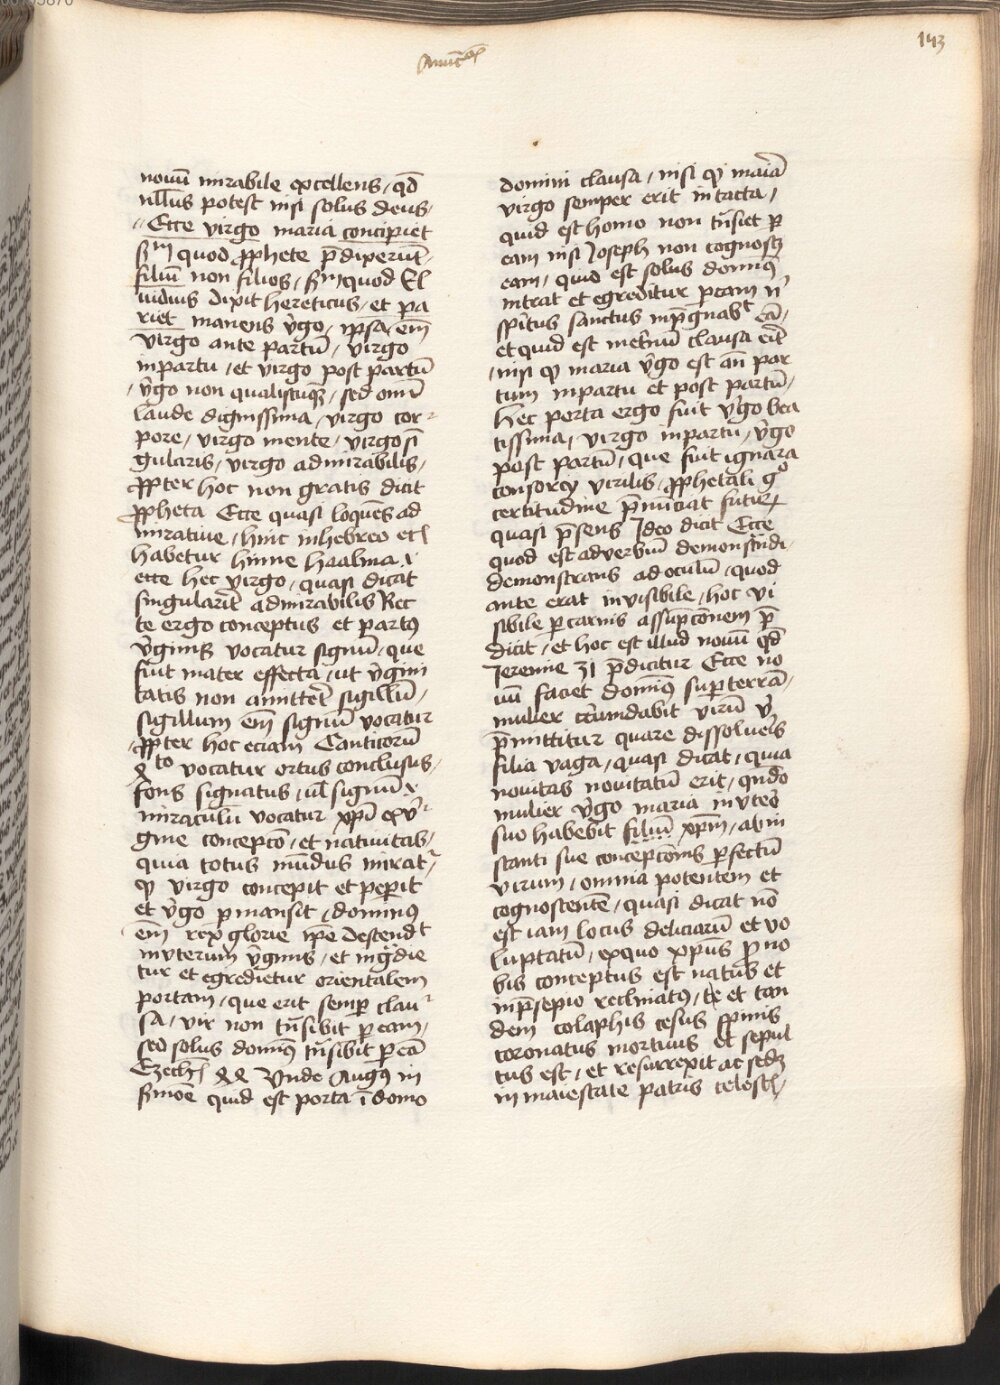 143
nouū mirabile excellens / qd̄
nullus potest nisi solus deus /
Ecce virgo maria concipiet
sm̄ quod ꝓphete p̄dixerūt /
filiū non filios / sm̄ quod El
uidius dixit hereticus / et pa
riet manens v̓go / ipsa em̄
virgo ante partū / virgo
inpartu / et virgo post partū
/ v̓go non qualiscūqꝫ / sed omī
laude dignissima / virgo cor
pore / virgo mente / virgo si
gularis / virgo admirabilis /
ꝓpter hoc non gratis dicit
ꝓpheta Ecce quasi loquēs ad
miratiue / hinc inhebreo
habetur hinne haalma .i.
ecce hec virgo / quasi dicat
singularit̄ admirabilis Rec
te ergo conceptus et partꝰ
v̓ginis vocatur signū / que
fuit mater effecta / ut v̓gini
tatis non amitter̄ sigillū /
sigillum em̄ signū vocatur
ꝓpter hoc eciam Canticorū
4to vocatur ortus conclusus /
fons signatus / ul̄ signū .i.
miraculū vocatur xpī ex v̓
gine concepcō / et natiuitas /
quia totus mūdus mirat̄
ꝙ virgo concepit et peꝑit
et v̓go ꝑmansit / dominꝰ
em̄ rex glorie ip̄e descendt
inuterum v̓ginis / et ingdie
tur et egredietur orientalem
portam / que erit semꝑ clau
sa / vir non tn̄sibit ꝑ eam /
sed solus domīꝰ tn̄sibit ꝑ eā
Ezech 44 Unde Augꝰ in
smōe quid est porta ī domo
domini clausa / nisi ꝙ maīa
virgo semper erit intacta /
quid est homo non tn̄siet ꝑ
eam nisi Joseph non cognoscꝫ
eam / quid est solus dominꝰ
intrat et egreditur ꝑ eam ni
spūtus sanctus inpgnabt eā /
et quid est inet̄nū clausa eīt
/ nisi ꝙ maria v̓go est an̄ par
tum inpartu et post partū /
hec porta ergo fuit v̓go bea
tissima / virgo inpartu / v̓go
post partū / que fuit ignara
consorcij virilis / ꝓphetali go
certitudine p̄nūciat futurꝝ
quasi p̄sens Ideo dicit Ecce
quod est aduerbiū demonstn̄di
demonstrans ad oculū / quod
ante erat inuisibile / hoc vi
sibile ꝑ carnis assūpcōnem p̄
dicit / et hoc est illud nouū qd̄
Jeremie 31 p̄dicitur Ecce no
uū faciet domīꝰ suꝑ terrā /
mulier ciʳcūdabit virū
p̄mittitur quare dissolueris
filia vaga / quasi dicat / quia
nouitas nouitatū erit / qn̄do
mulier v̓go maria in uteō
suo habebit filiū xp̄m / ab in
stanti sue concepcōnis ꝑfectū
virum / omnia potentem et
cognoscentē / quasi dicat nō
est iam locus deliciarū et vo
luptatū / exquo xpūs ꝓ no
bis conceptus est natus et
inp̄sepio reclinatꝰ / et tan
dem colaphis cesus spinis
coronatus mortuus et sepul
tus est / et resurrexit ac sedꝫ
in maiestate patris celest /